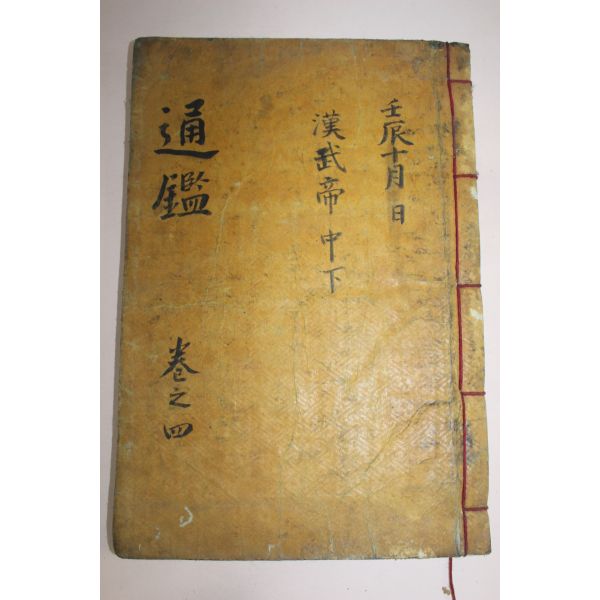 壬辰十月 日
漢武帝 中下
通鑑
卷之四